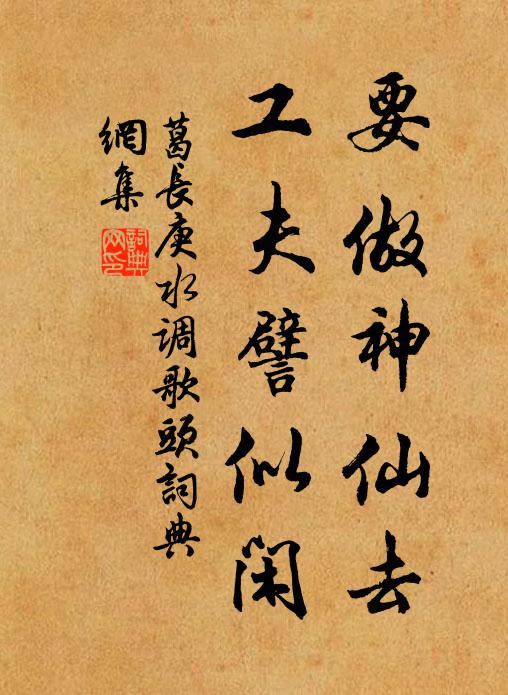 要做神仙去
工夫譬似闲
葛長庚水调歌頭詞典
網集
詞典網印